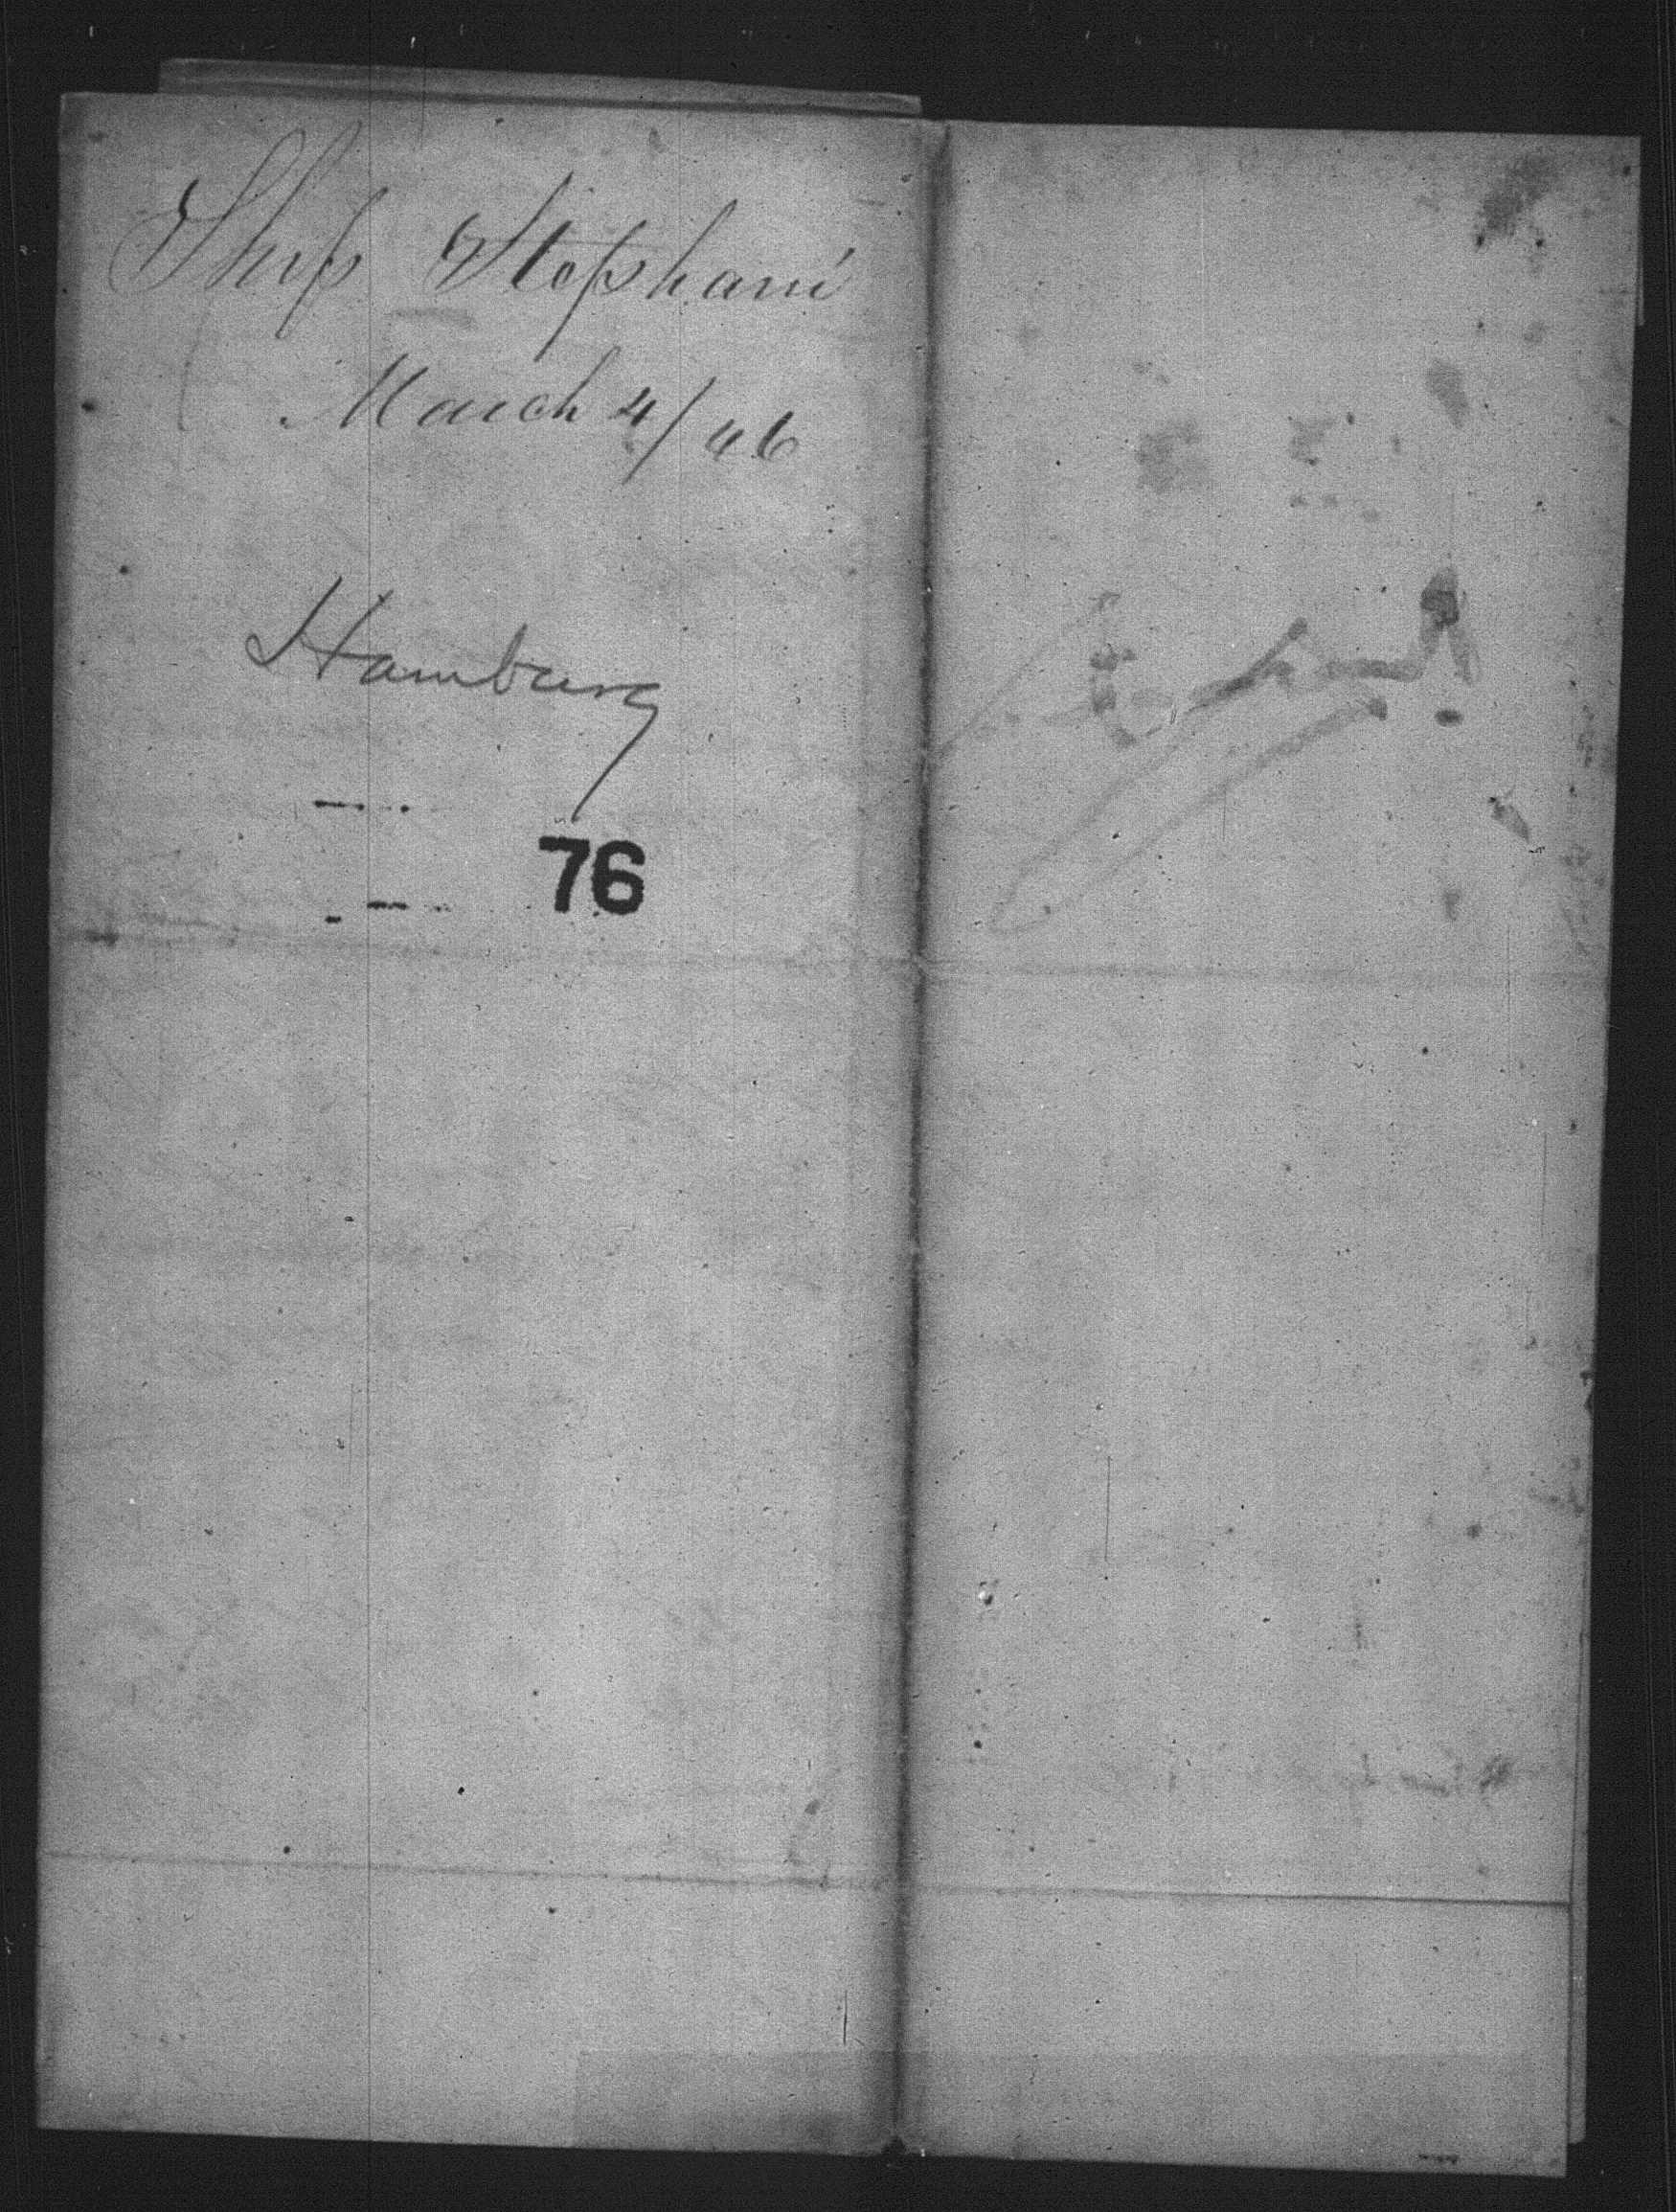 Ship Stephani
March 4/46
Hamburg
76